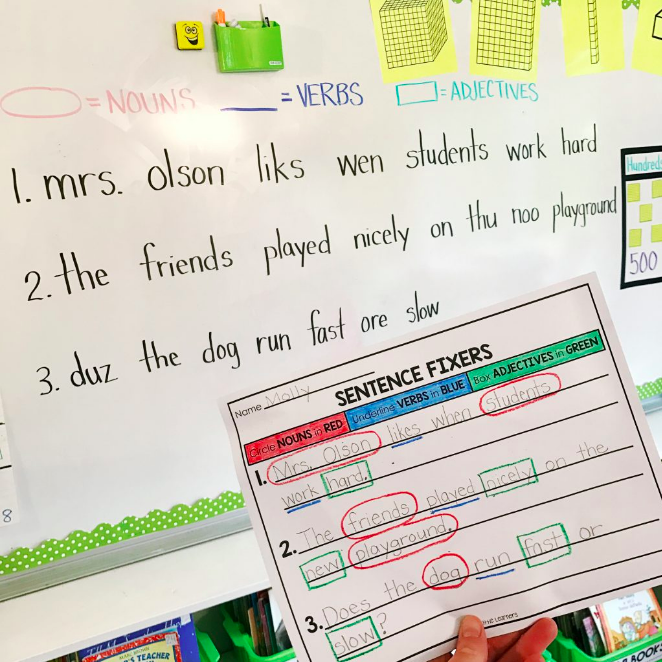 = NOUNS = VERBS = ADJECTIVES
1. mrs. olson liks wen students work hard
2. the friends played nicely on thu noo playground
3. duz the dog run fast ore slow
Hundreds
500
8
Name Molly SENTENCE FIXERS
Circle NOUNS in RED Underline VERBS in BLUE Box ADJECTIVES in GREEN
1. Mrs. Olson likes when students
work hard.
2. The friends played nicely on the
new playground.
3. Does the dog run fast or
slow?
TEACHER
BOOK